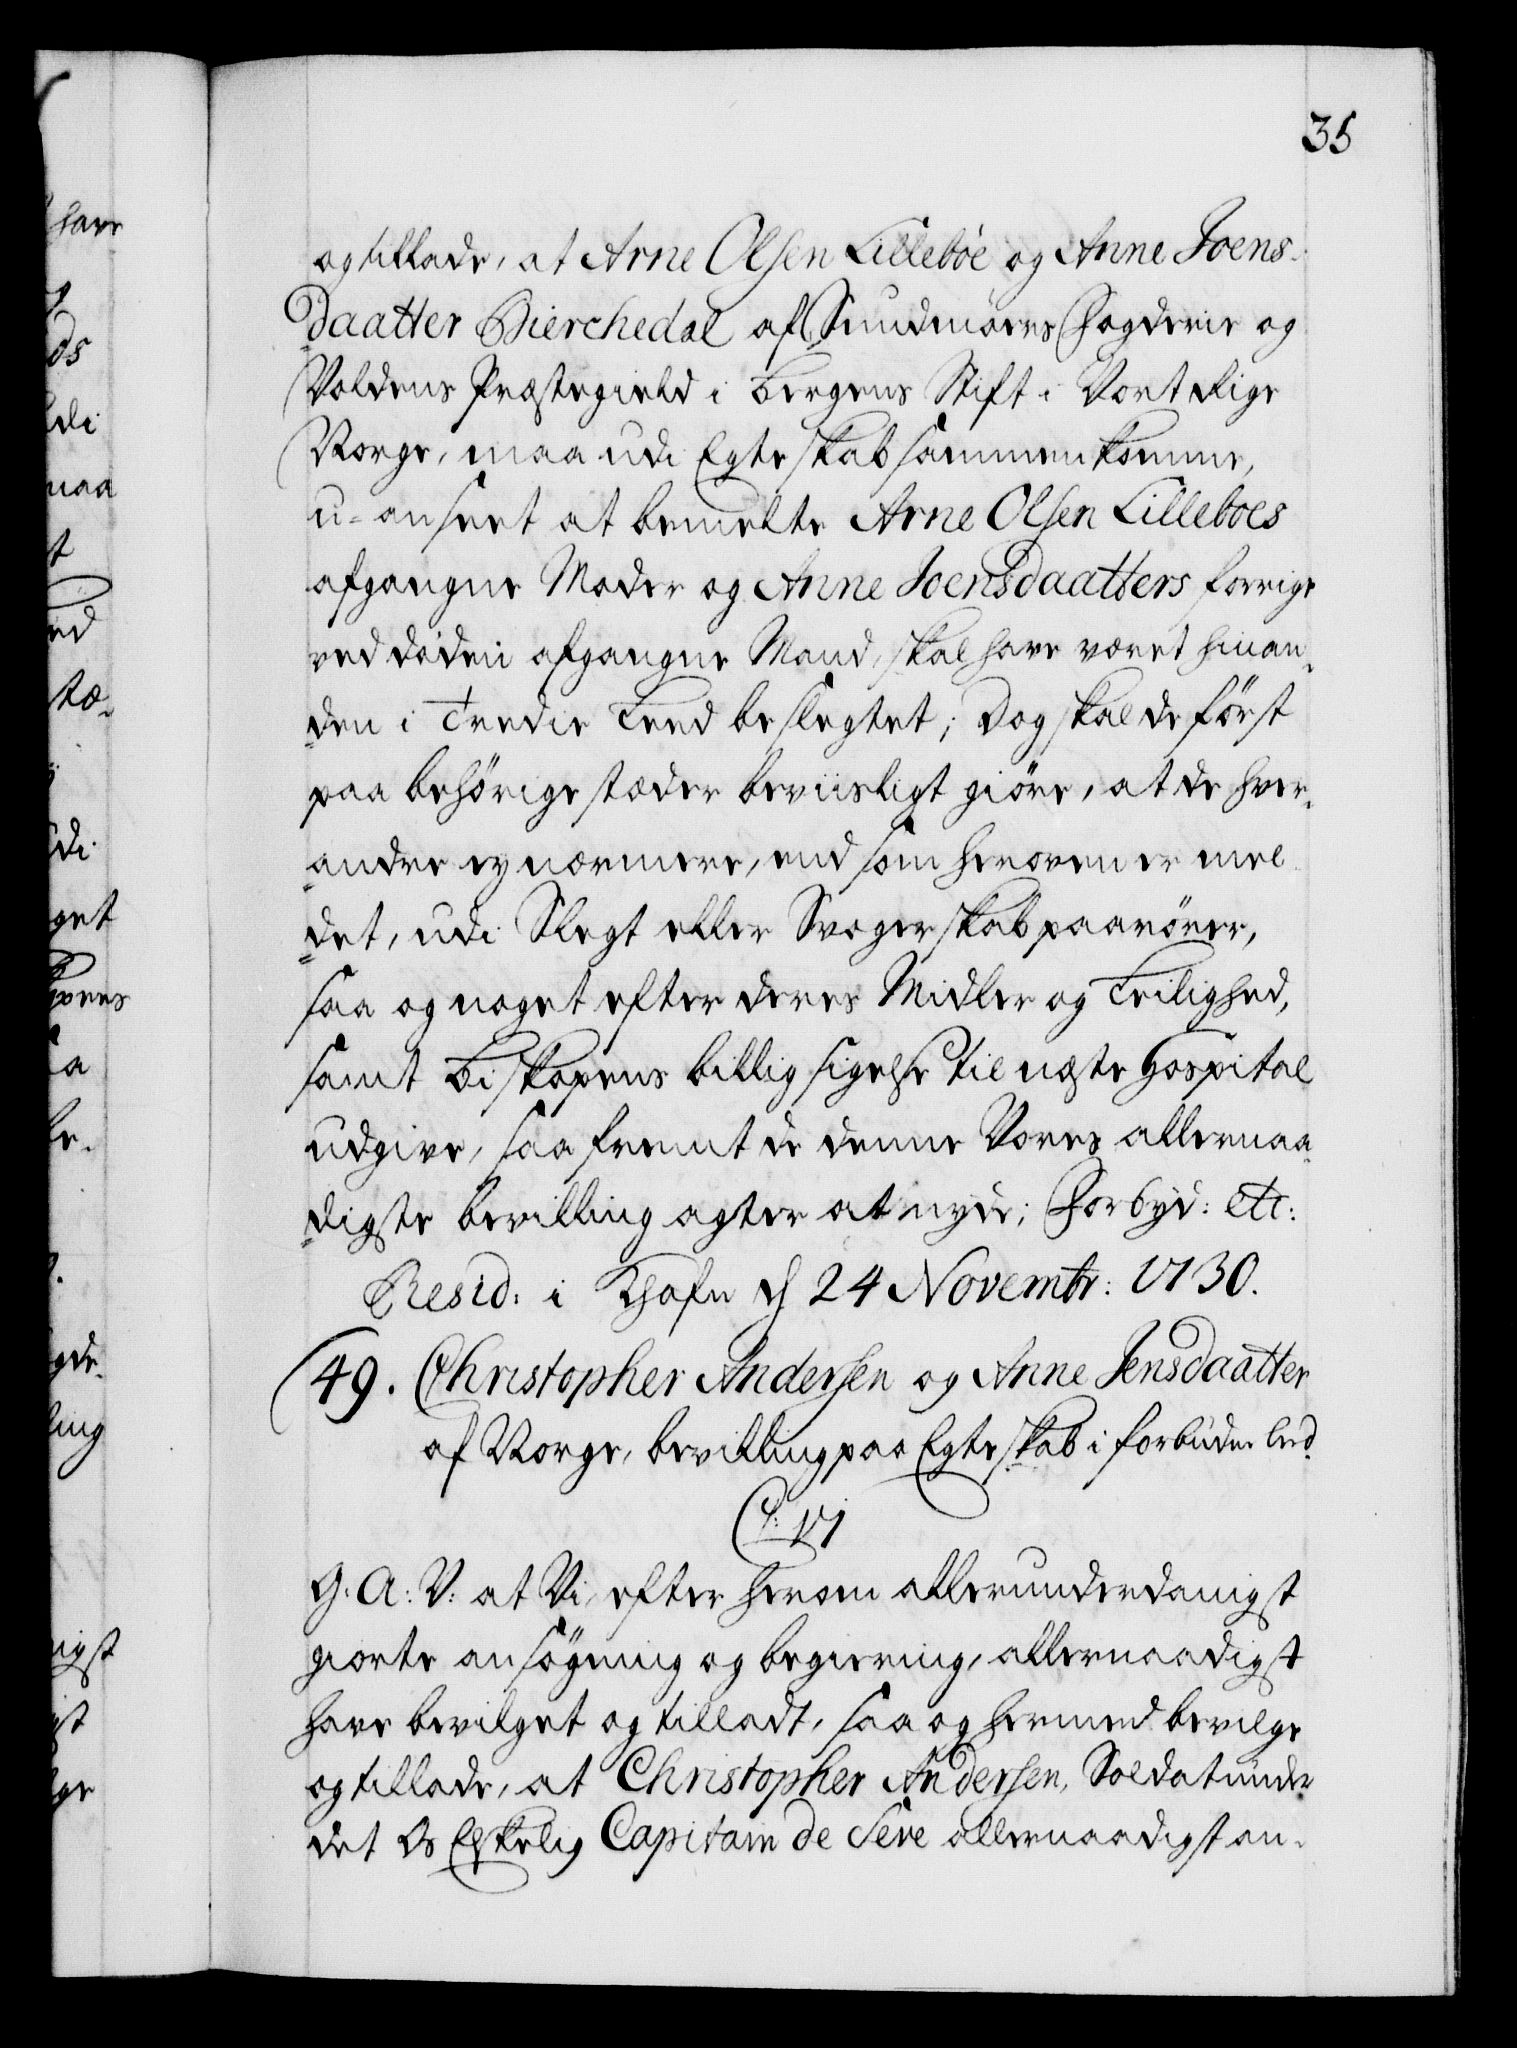 35
og tillade, at Arne Olsen Lilleböe og Anne Joens-
daatter Bierchedal af Sundmöers Fogderie og
Voldens Præstegield i Bergens Stift i Vort Rige
Norge, maa udi Egteskab sammenkomme,
u-anseet at bemelte Arne Olsen Lilleboes
afgangne Moder og Anne Joensdaatters forrige
ved döden afgangne Mand, skal have været hinan-
den i Tredie Leed beslegtet; Dog skal de först
paa behörige stæder beviisligt giöre, at de hver-
andre ey nærmere, end som heroven er mel-
det, udi Slegt eller Svogerskab paarörer,
saa og noget efter deres Midler og Leilighed,
samt Biskopens billig sigelse til næste Hospital
udgive, saa fremt de denne Vores allernaa-
digste bevilling agter at nyde; Forbyd: etc:
Resid: i Khafn d 24 Novembr: 1730.
49. Christopher Andersen og Anne Jensdaatter
af Norge, bevilling paa Egteskab i forbuden leed.
C: VI
G: A: V: at Vi, efter herom allerunderdanigst
giorte ansögning og begiering, allernaadigst
have bevilget og tilladt, saa og hermed bevilge
og tillade, at Christopher Andersen, Soldat under
det Os Elskelig Capitain de Seve allernaadigst an-
have
ds
maa
ed
tæ-
get
a
gde-
ling
nigst